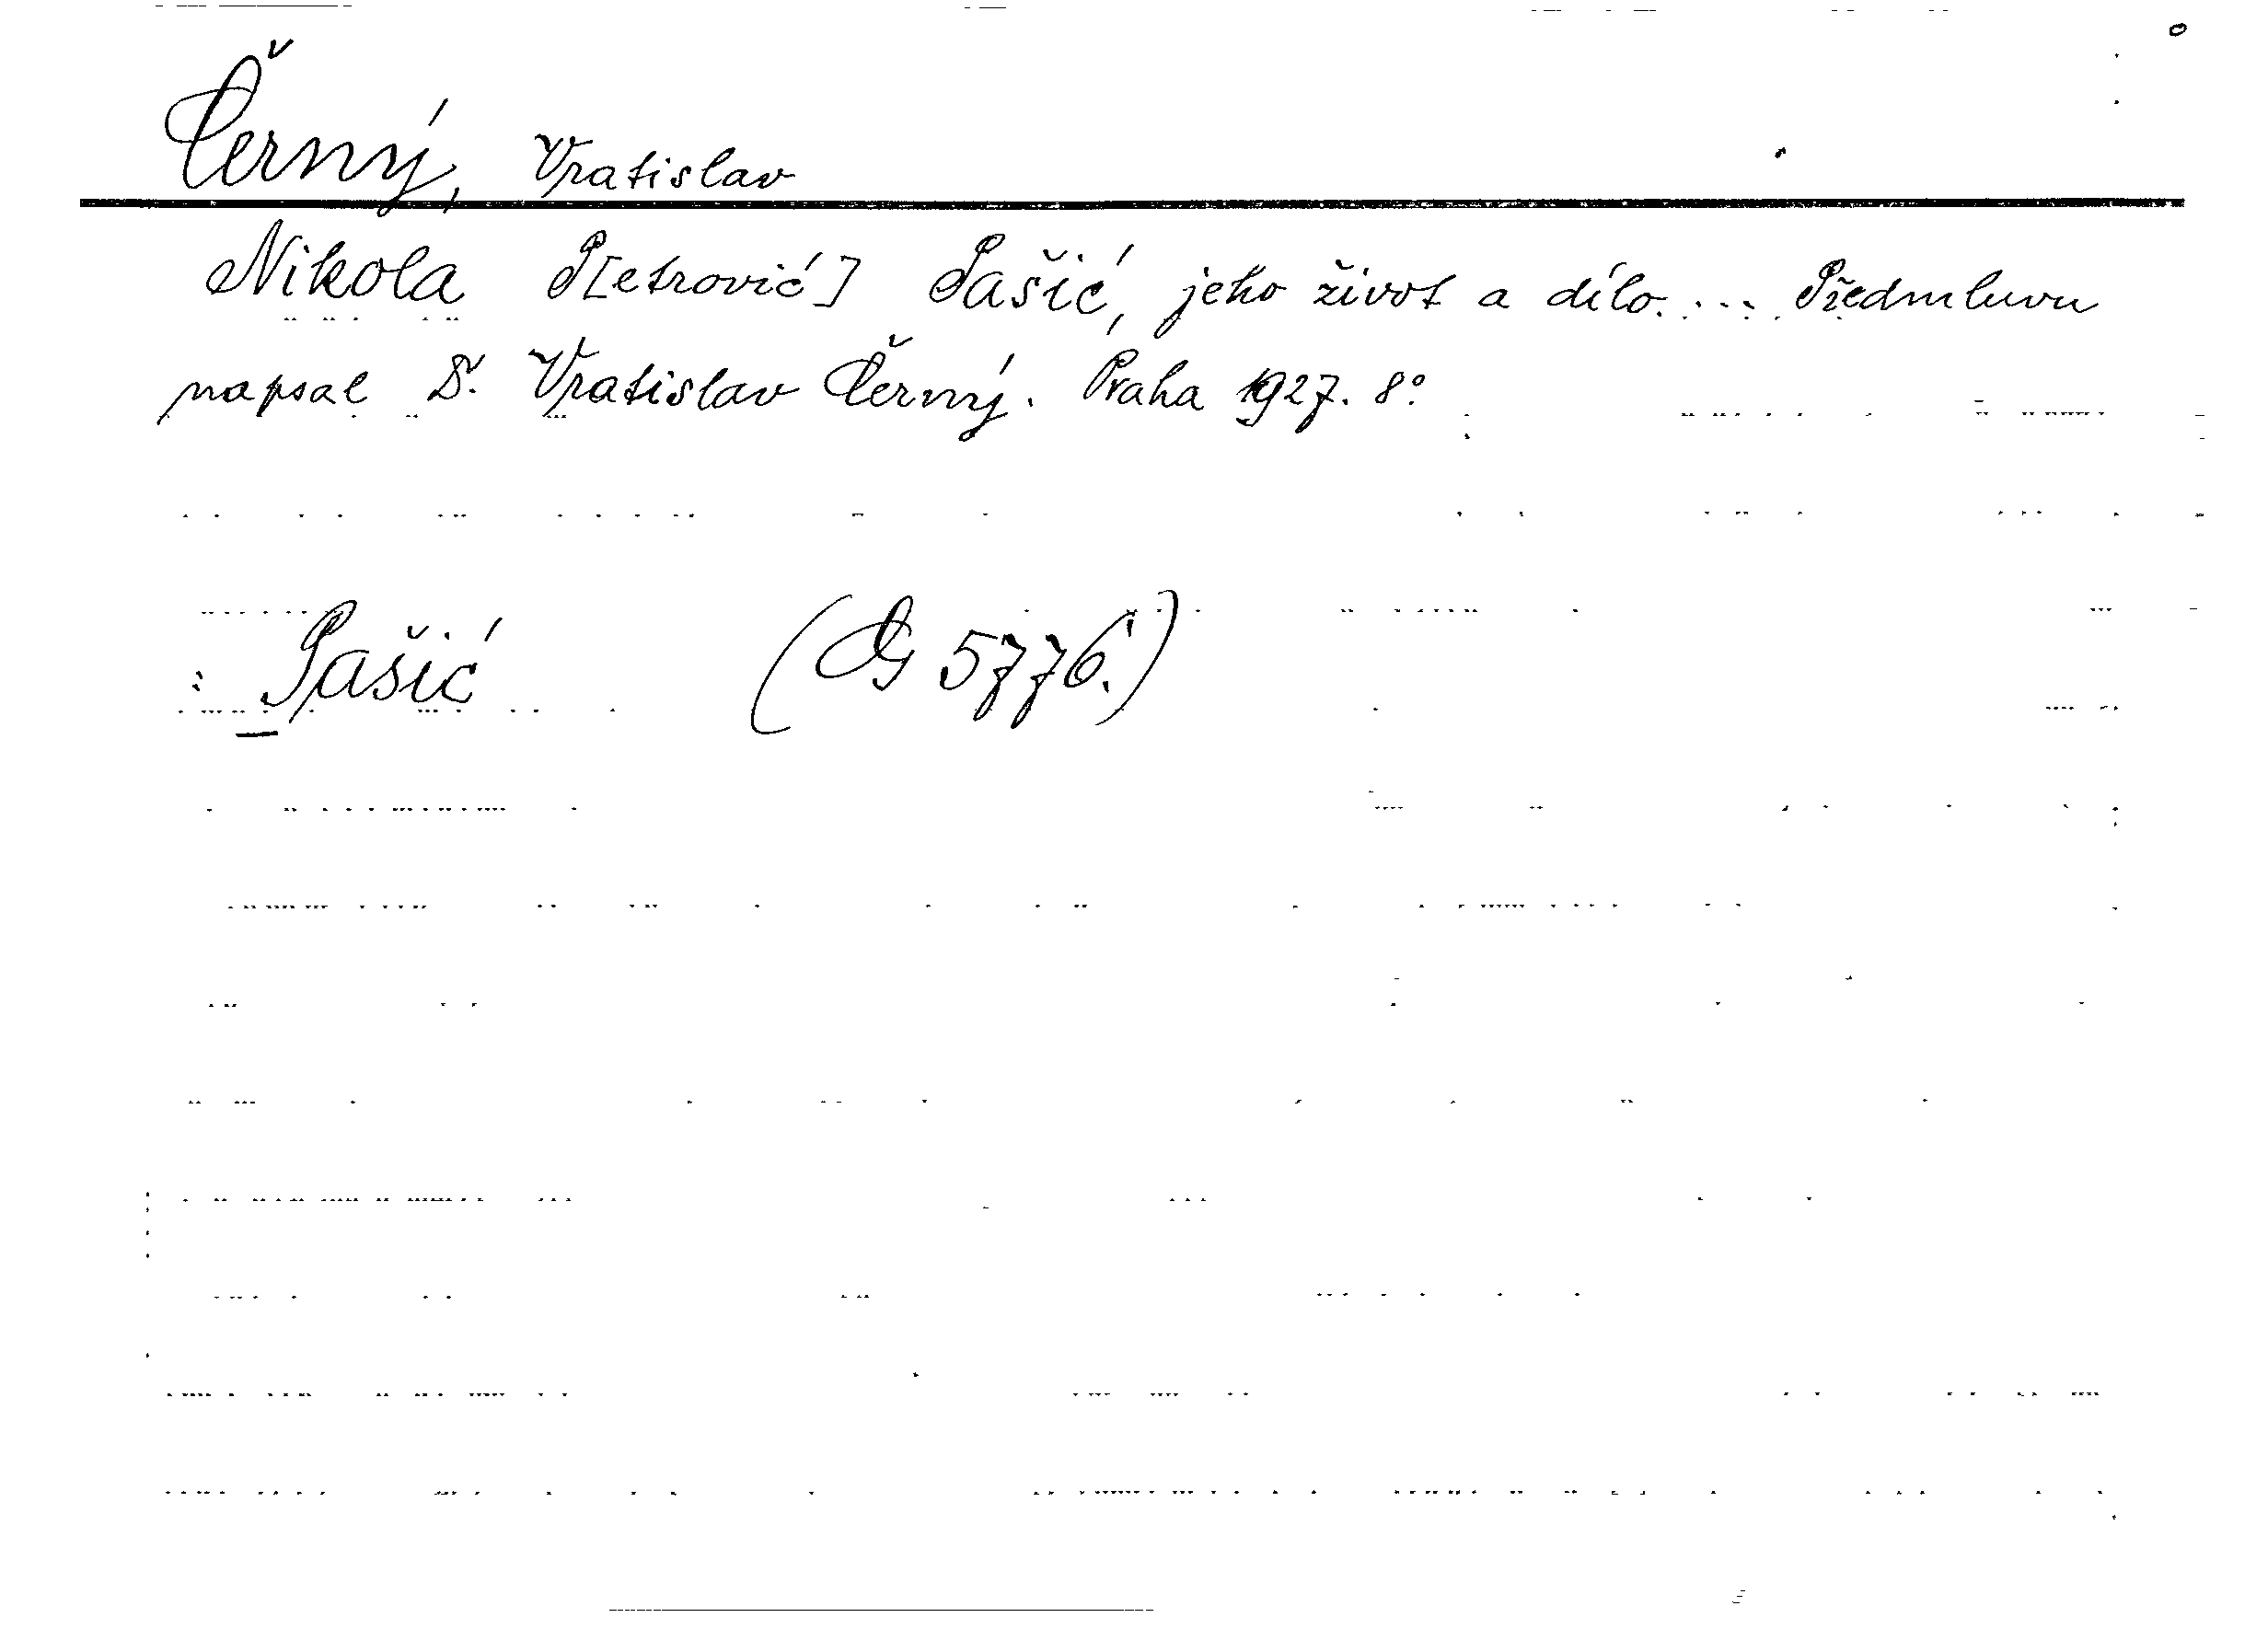 Černý, Vratislav
Nikola P[etrović] Pašić, jeho život a dílo. ... Předmluvu
napsal Dr. Vratislav Černý. Praha 1927. 8°
: Pašić (G 5776.)